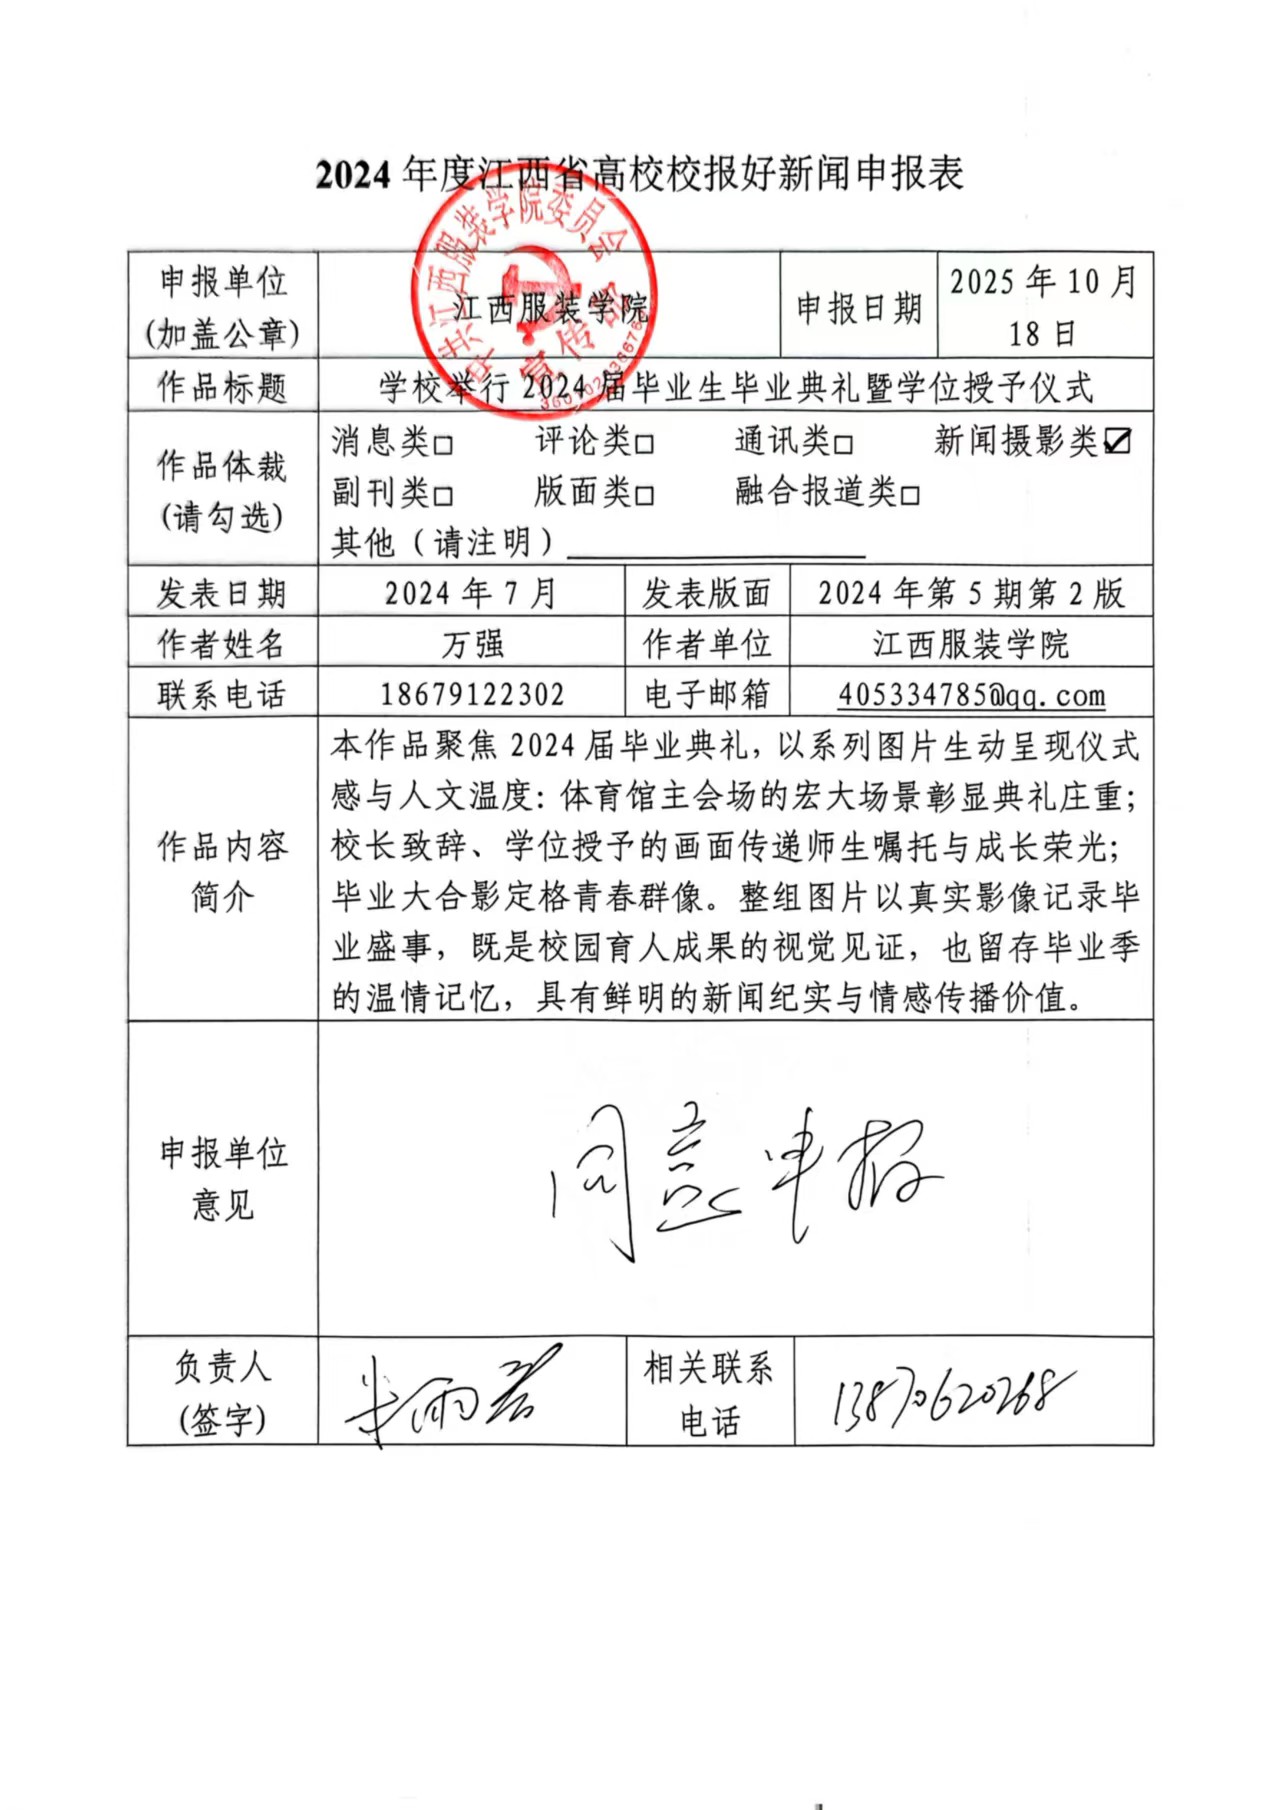 2024 年度江西省高校校报好新闻申报表
申报单位
(加盖公章)
江西服装学院
申报日期
2025 年 10 月
18 日
中共江西服装学院委员会
宣传部
作品标题
学校举行 2024 届毕业生毕业典礼暨学位授予仪式
作品体裁
(请勾选)
消息类□ 评论类□ 通讯类□ 新闻摄影类☑
副刊类□ 版面类□ 融合报道类□
其他（请注明）
发表日期 2024 年 7 月 发表版面 2024 年第 5 期第 2 版
作者姓名 万强 作者单位 江西服装学院
联系电话 18679122302 电子邮箱 405334785@qq.com
作品内容
简介
本作品聚焦 2024 届毕业典礼，以系列图片生动呈现仪式
感与人文温度：体育馆主会场的宏大场景彰显典礼庄重；
校长致辞、学位授予的画面传递师生嘱托与成长荣光；
毕业大合影定格青春群像。整组图片以真实影像记录毕
业盛事，既是校园育人成果的视觉见证，也留存毕业季
的温情记忆，具有鲜明的新闻纪实与情感传播价值。
申报单位
意见
同意申报
负责人
(签字)
相关联系
电话
13870620268